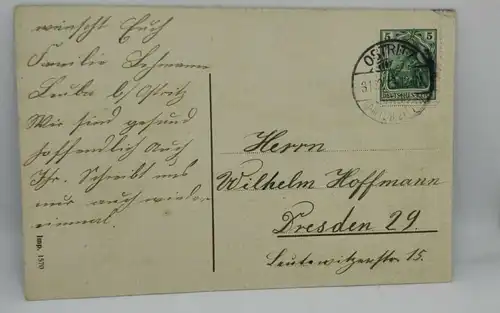 wünscht Euch
Familie Lehmann
Leuba b/Ostritz
Wir sind gesund
hoffendlich auch
Ihr. Schreibt uns
nur auch wieder
einmal.
Imp. 1570
5 5
OSTRITZ
Herrn
Wilhelm Hoffmann
Dresden 29.
Leutewitzerstr 15.